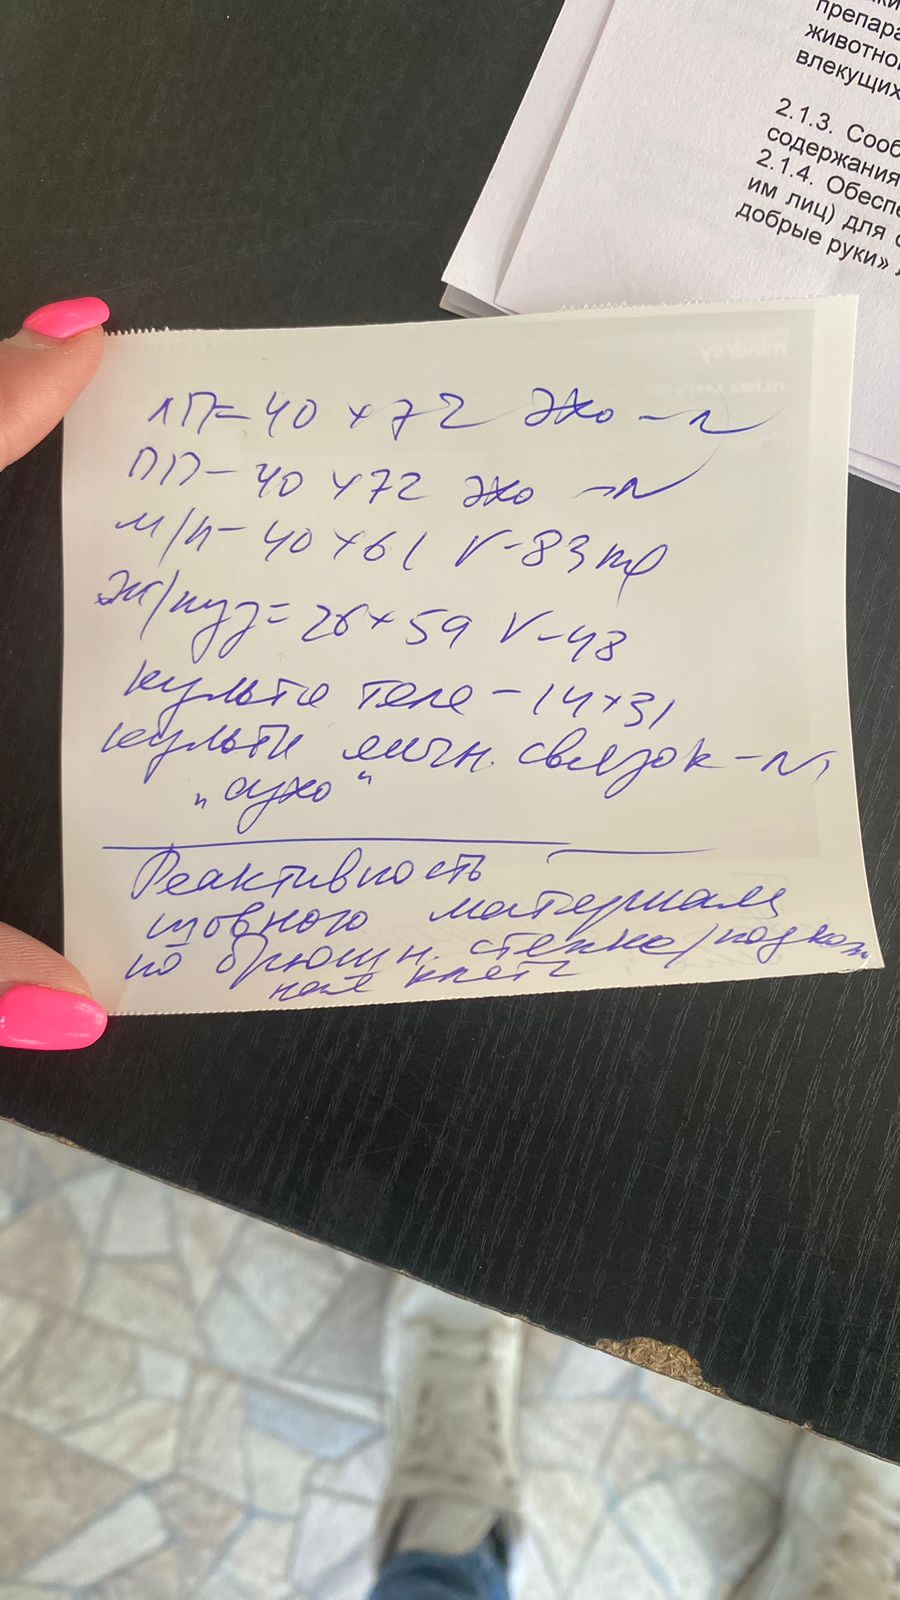 препара
животно
влекущих
2.1.3. Сооб
содержания
2.1.4. Обеспе
им лиц) для
добрые руки»
ЛП=40×72 эхо-N
ПП-40×72 эхо-N
м/п-40×61 V-83 ml
ж/пуз=26×59 V-48
культя тела-14×31
культи яичн. связок-N,
„сухо"
Реактивность
шовного материала
по брюшн. стенке/подкож
ная клетч